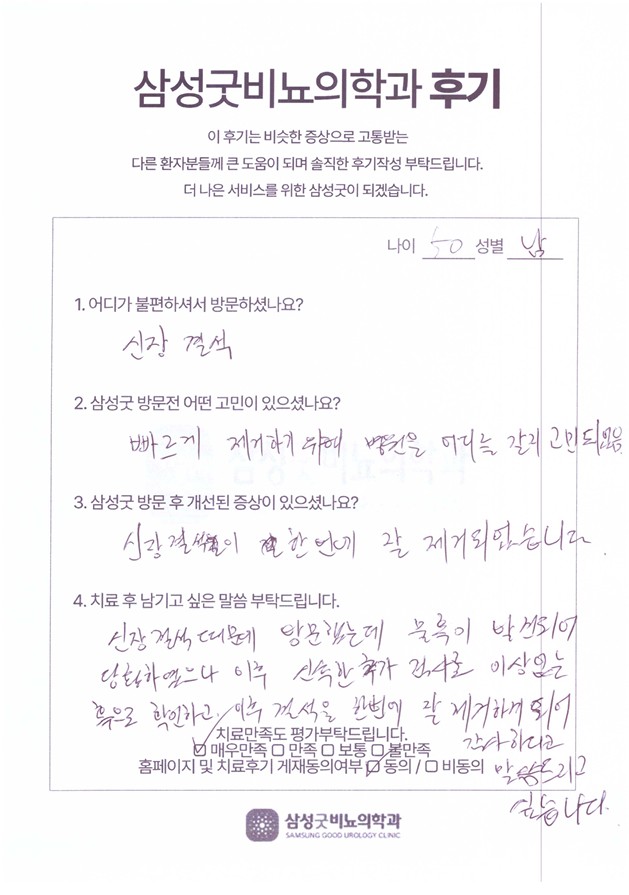 삼성굿비뇨의학과 후기
이 후기는 비슷한 증상으로 고통받는
다른 환자분들께 큰 도움이 되며 솔직한 후기작성 부탁드립니다.
더 나은 서비스를 위한 삼성굿이 되겠습니다.
나이 50 성별 남
1. 어디가 불편하셔서 방문하셨나요?
신장 결석
2. 삼성굿 방문전 어떤 고민이 있으셨나요?
빠르게 제거하기 위해 병원을 어디를 갈지 고민되었음
3. 삼성굿 방문 후 개선된 증상이 있으셨나요?
신장결석이 한번에 잘 제거되었습니다.
4. 치료 후 남기고 싶은 말씀 부탁드립니다.
신장결석 때문에 방문했는데 물혹이 발견되어
당황하였으나 이후 신속한 추가 검사로 이상없는
혹으로 확인하고, 이후 결석을 한번에 잘 제거하게 되어
치료만족도 평가부탁드립니다.
매우만족 만족 보통 불만족 감사하다고
홈페이지 및 치료후기 게재동의여부 동의 / 비동의 말씀드리고
싶습니다.
삼성굿비뇨의학과
SAMSUNG GOOD UROLOGY CLINIC